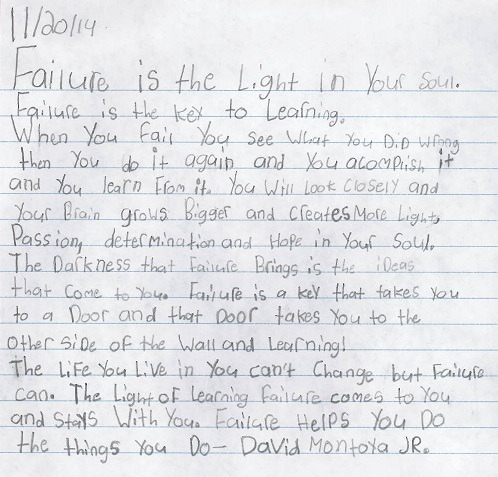 11/20/14
Failure is the Light in Your Soul.
Failure is the key to Learning.
When You Fail You see What You DiD Wrong
then You do it again and You acomplish it
and You learn From it. You Will Look Closely and
Your Brain grows Bigger and Creates More Light,
Passion, determination and Hope in Your Soul.
The Darkness that Failure Brings is the iDeas
that Come to You. Failure is a key that takes You
to a Door and that Door takes You to the
other Side of the Wall and Learning!
The Life You Live in You can't Change but Failure
can. The Light of Learning Failure comes to You
and Stays With You. Failure Helps You Do
the things You Do- David Montoya JR.